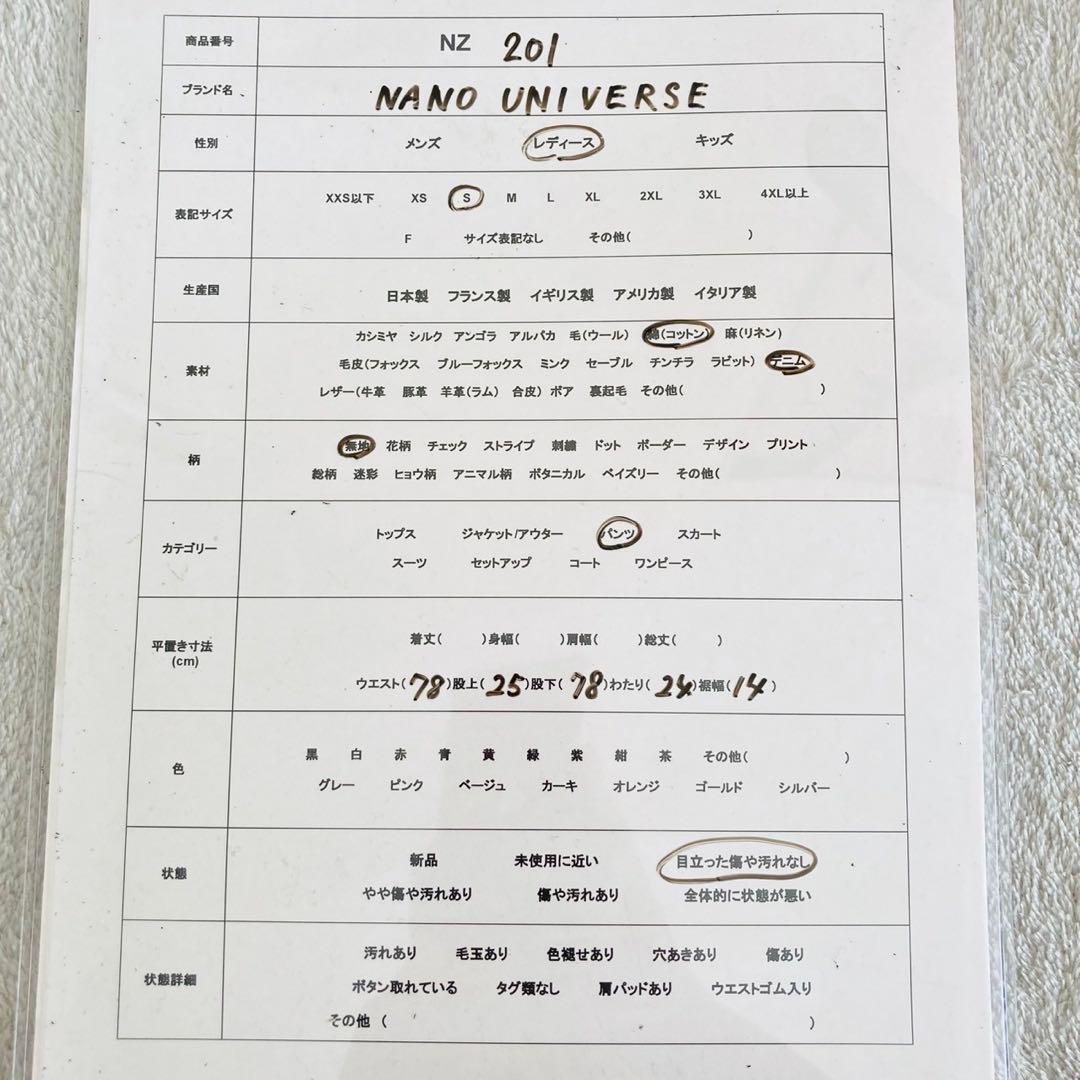 商品番号 NZ 201
ブランド名 NANO UNIVERSE
性別 メンズ レディース キッズ
表記サイズ XXS以下 XS S M L XL 2XL 3XL 4XL以上
F サイズ表記なし その他( )
生産国 日本製 フランス製 イギリス製 アメリカ製 イタリア製
素材 カシミヤ シルク アンゴラ アルパカ 毛(ウール) 綿(コットン) 麻(リネン)
毛皮(フォックス ブルーフォックス ミンク セーブル チンチラ ラビット) デニム
レザー(牛革 豚革 羊革(ラム) 合皮) ボア 裏起毛 その他( )
柄 無地 花柄 チェック ストライプ 刺繍 ドット ボーダー デザイン プリント
総柄 迷彩 ヒョウ柄 アニマル柄 ボタニカル ペイズリー その他( )
カテゴリー トップス ジャケット/アウター パンツ スカート
スーツ セットアップ コート ワンピース
平置き寸法 着丈( )身幅( )肩幅( )総丈( )
(cm) ウエスト(78)股上(25)股下(78)わたり(24)裾幅(14)
色 黒 白 赤 青 黄 緑 紫 紺 茶 その他( )
グレー ピンク ベージュ カーキ オレンジ ゴールド シルバー
状態 新品 未使用に近い 目立った傷や汚れなし
やや傷や汚れあり 傷や汚れあり 全体的に状態が悪い
状態詳細 汚れあり 毛玉あり 色褪せあり 穴あきあり 傷あり
ボタン取れている タグ類なし 肩パッドあり ウエストゴム入り
その他 ( )